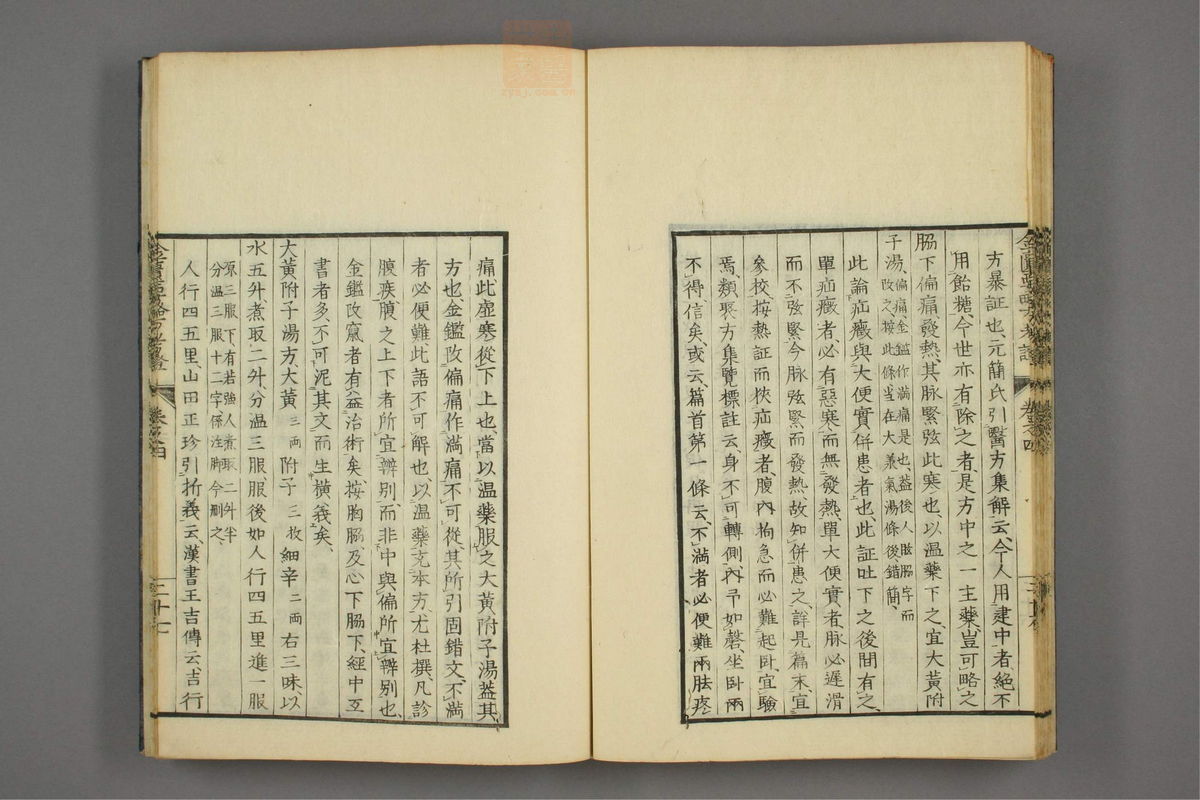 方暴証也、元簡氏引醫方集解云、今人用建中者、絕不
用飴糖、今世亦有除之者、是方中之一主藥、豈可略之
脇下偏痛、發熱、其脉緊弦、此寒也、以温藥下之、宜大黃附
子湯、
偏痛、金鑑作滿痛是也、蓋後人眩脇字而
改之、據此條當在大黃氣湯條後錯簡、
此論疝癥與大便實併患者也、此証吐下之後間有之、
單疝癥者、必有惡寒而無發熱、單大便實者、脉必遲滑
而不弦緊、今脉弦緊而發熱、故知併患之、詳見篇末、宜
參校、按熱証而挾疝癥者、腹內拘急而必難起卧、宜驗
焉、類聚方集覽標註云、身不可轉側、內吊如磬、坐卧兩
不得信矣、或云、篇首第一條云、不滿者必便難、兩胠疼
痛、此虛寒從下上也、當以温藥服之、大黃附子湯、蓋其
方也、金鑑改偏痛作滿痛、不可從、其所引固錯文、不滿
者必便難、此語不可解也、以温藥充本方、尤杜撰、凡診
腹疾、腹之上下者、所宜辨別、而非中與偏所宜辨別也、
金鑑改竄者、有益治術矣、按胸脇及心下脇下、經中互
書者多、不可泥其文而生橫義矣、
大黃附子湯方、大黃三両附子三枚細辛二両右三味、以
水五升、煮取二升、分温三服、服後如人行四五里進一服
原三服下、有若強人煮取二升半
分温三服十二字、係注脚、今刪之、
人行四五里、山田正珍引折義云、漢書王吉傳云、吉行
卷之四